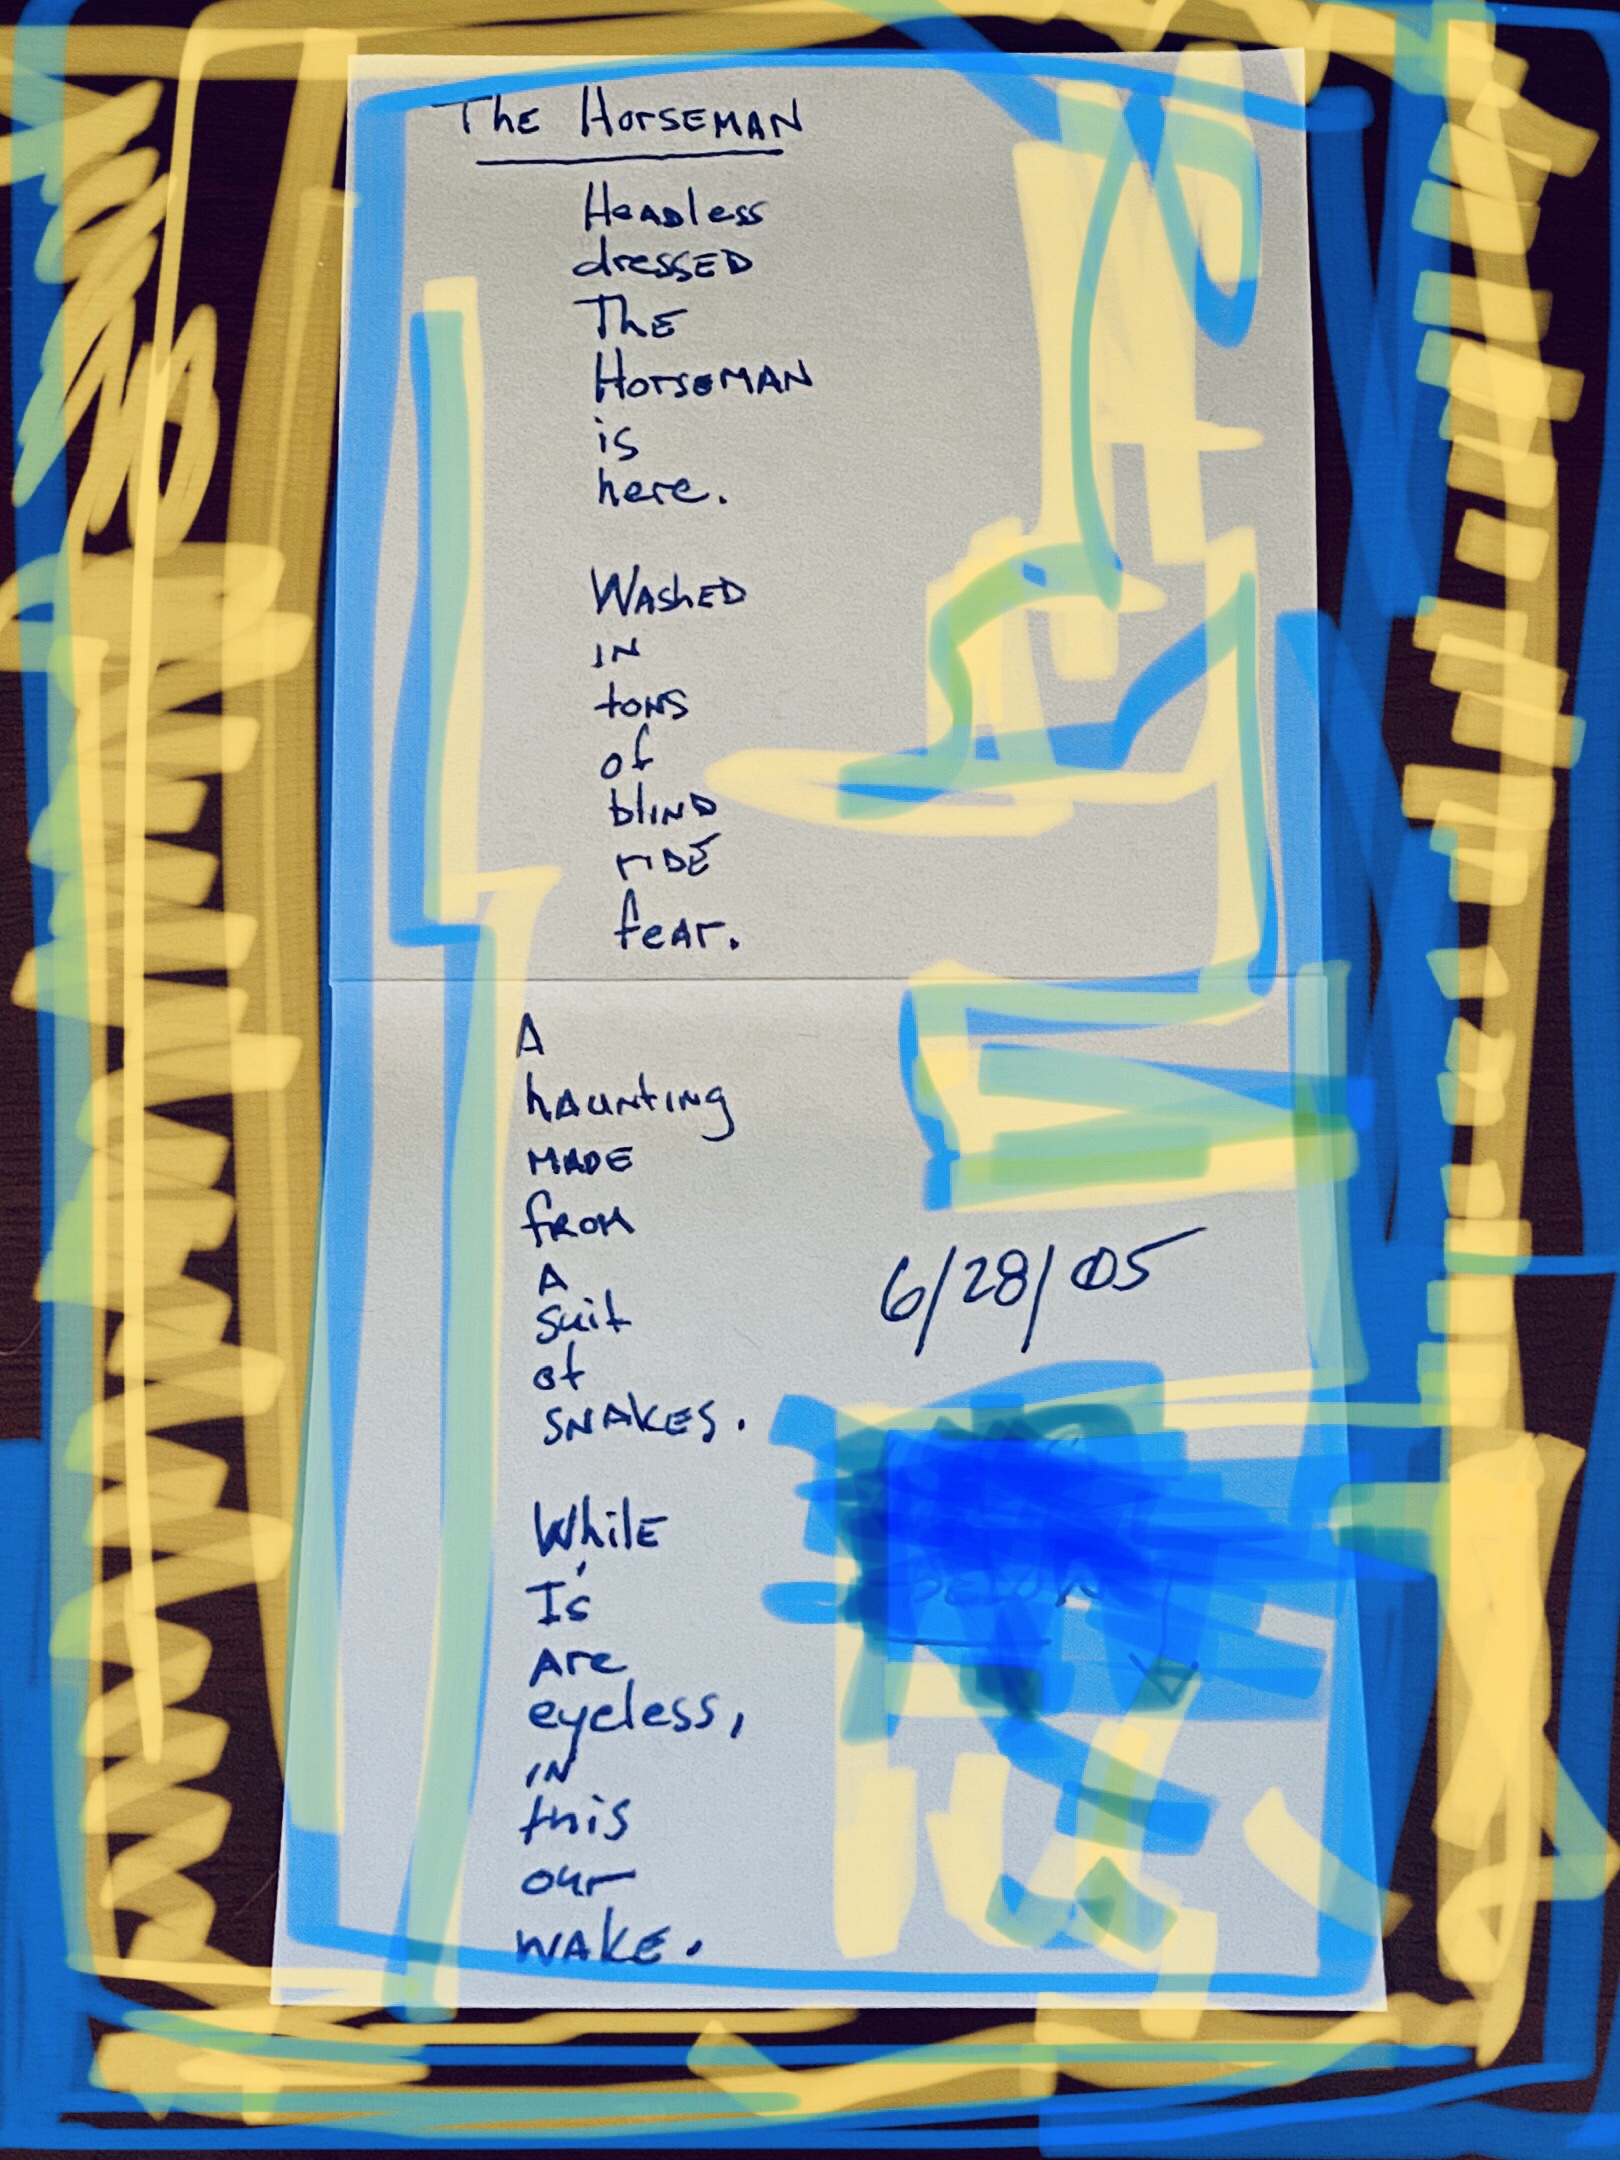 The Horseman
Headless
dressed
The
Horseman
is
here.
Washed
in
tons
of
blind
ride
fear.
A
haunting
made
from
a
suit
of
snakes.
6/28/05
While
I's
are
eyeless,
in
this
our
wake.
below